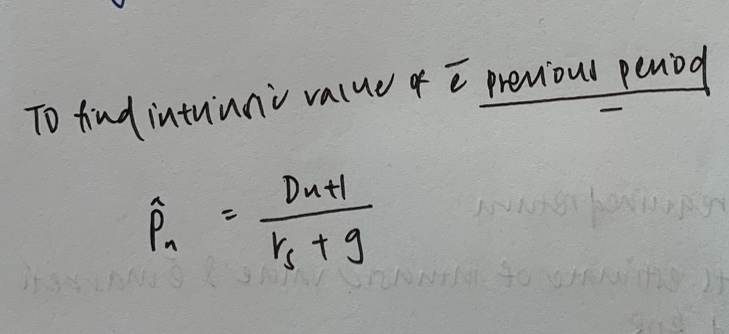 TO find intrinsic value of ē previous period
P̂n = Dn+1 / rs + g